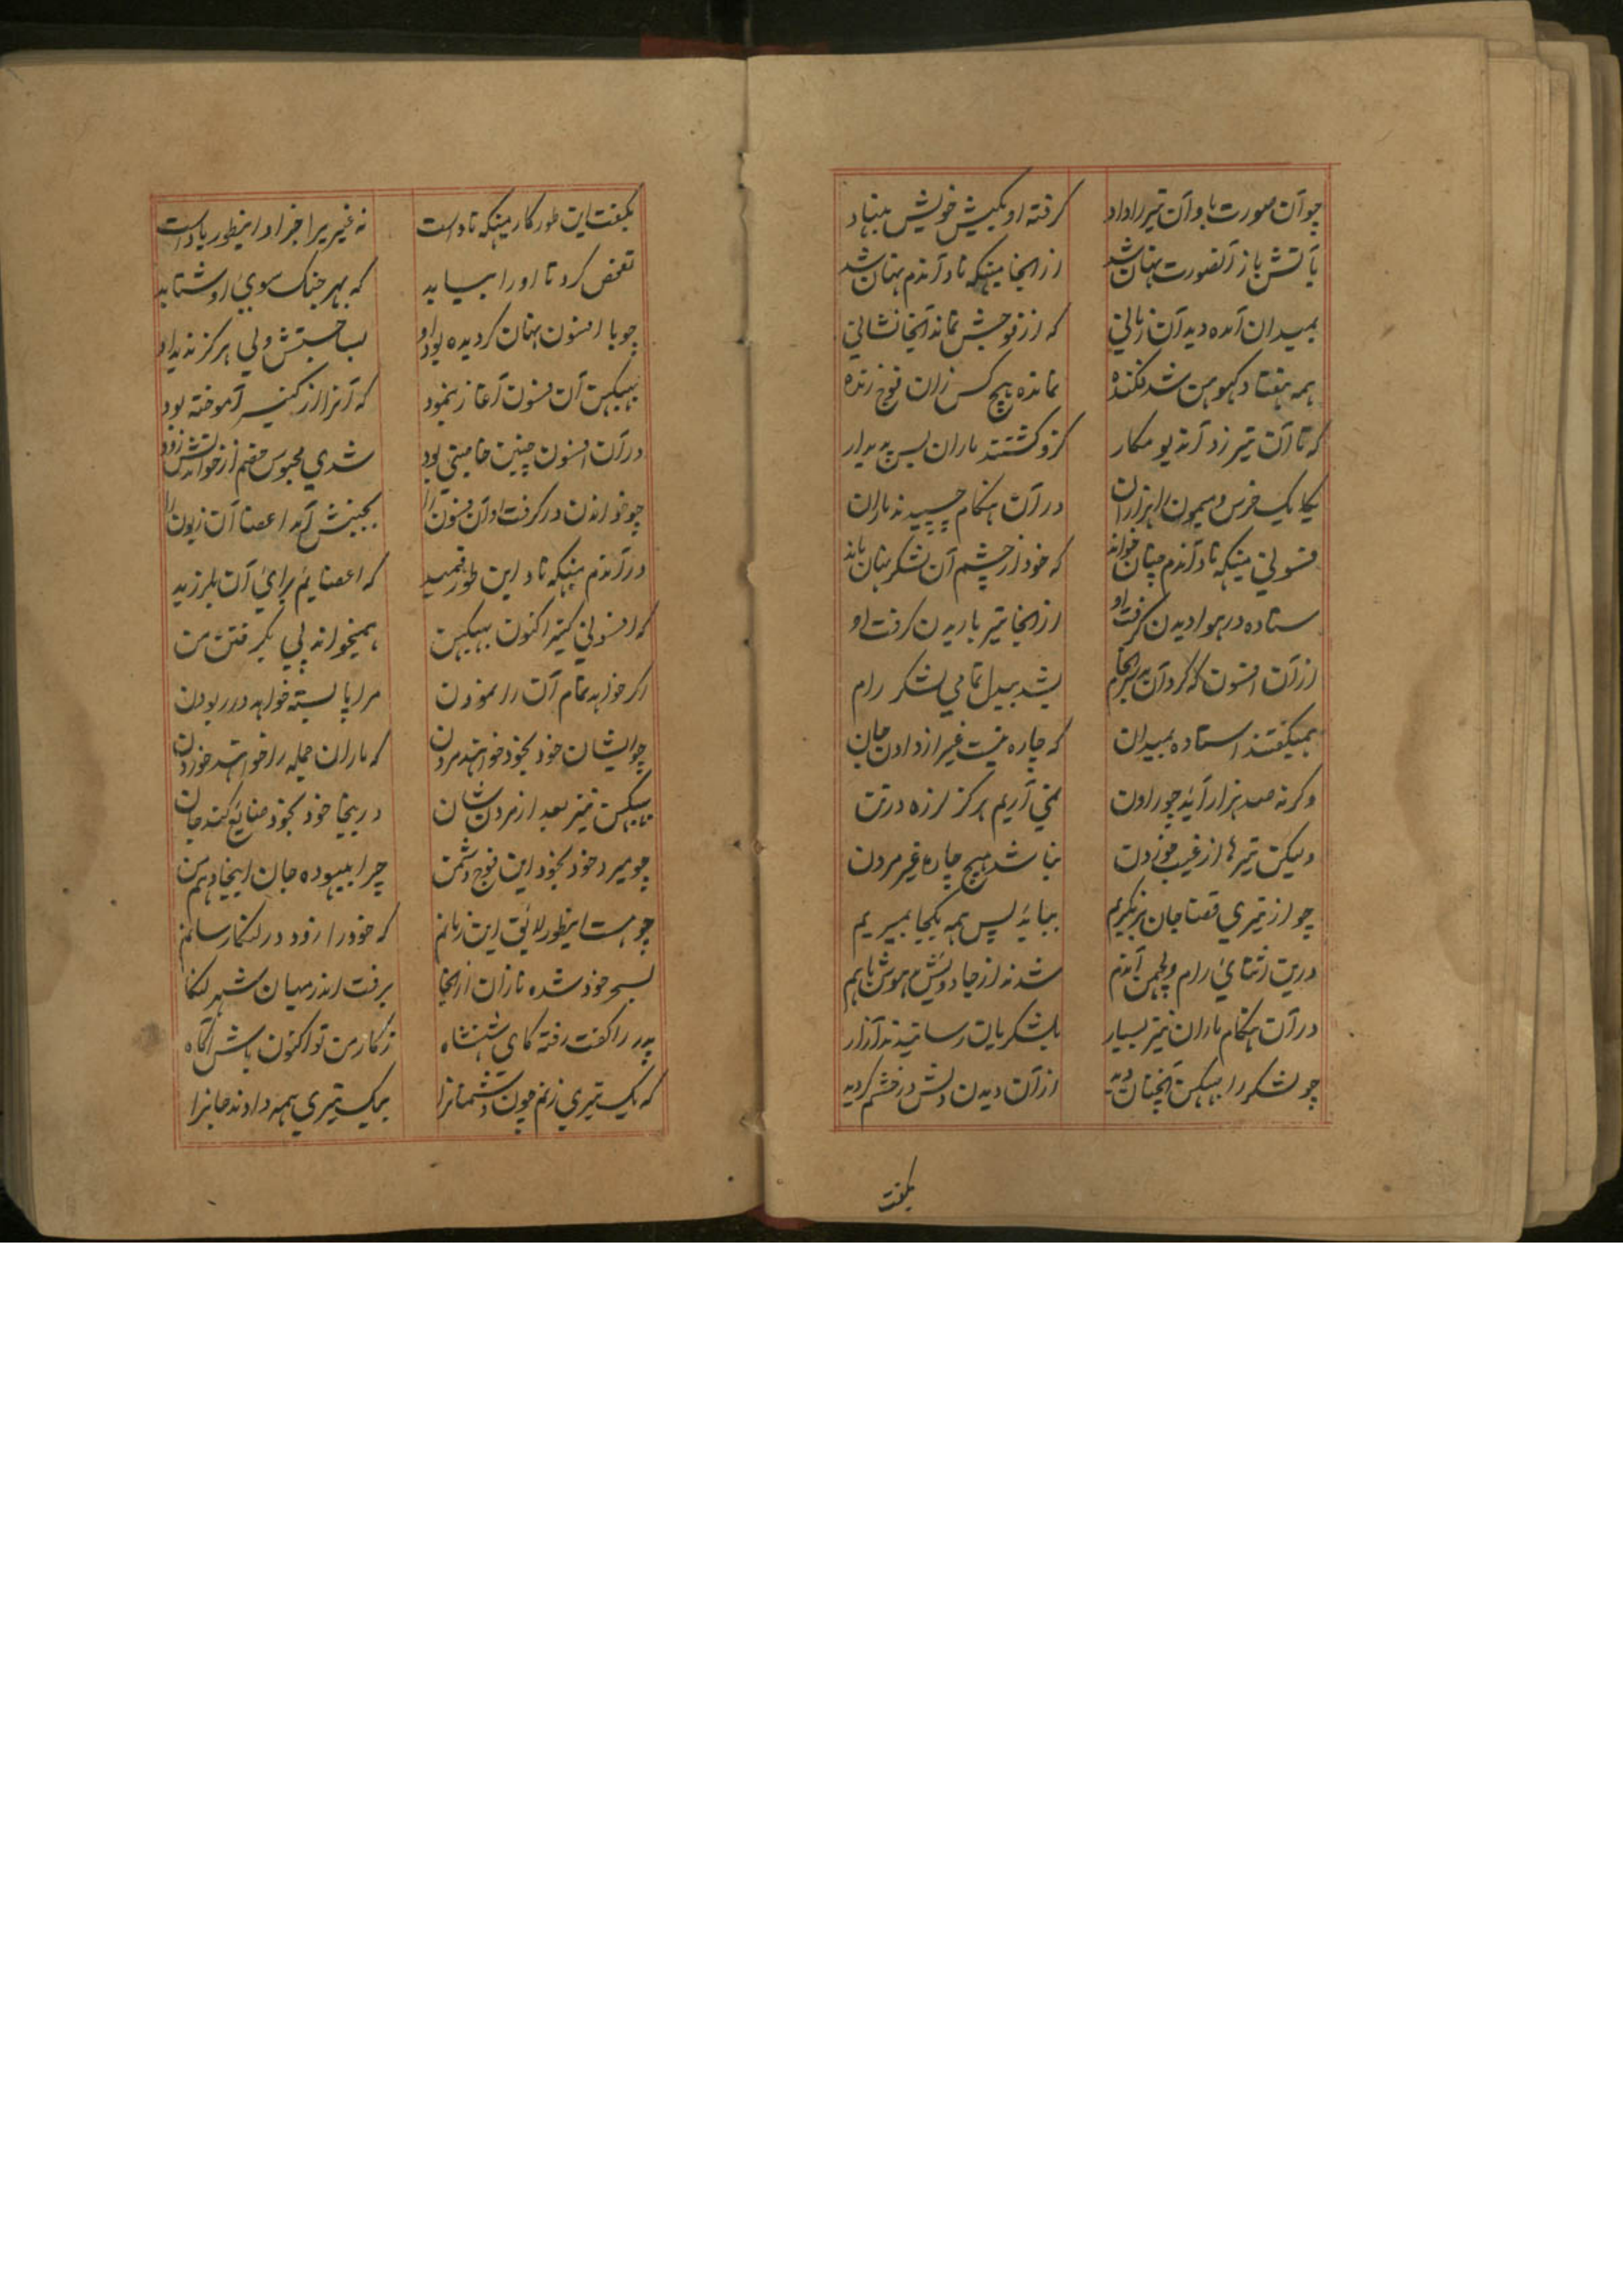 چو آن صورت باو آن تیر را داد گرفته او بکیش خویش بنهاد
بآتش باز آنصورت نهان شد از آنجا میکهه ناد آندم نهان شد
بمیدان آمده دید آن زمانی که از فوجش نماند آنجا نشانی
همه هفتاد کهوهن شد فکنده نمانده هیچ کس زان فوج زنده
که تا آن تیر زد آن دیو مکار کزو گشتند ماران پس پدیدار
یکایک خرس و میمون هزاران در آن هنگام چسپیدند ماران
فسونی میکهه ناد آندم چنان خواند که خود از چشم آن لشکر نهان ماند
ستاده در هوا دیدن گرفت او از آنجا تیر باریدن گرفت او
از آن افسون که کرد آن بد سرانجام بشد بیدل تمامی لشکر رام
همیگفتند استاده بمیدان که چاره نیست غیر از دادن جان
وگرنه صد هزار آید چو راون نمی آریم هرگز لرزه در تن
ولیکن تیرها از غیب خوردن نباشد هیچ چاره غیر مردن
چو از تیر قضا جان بر نگیریم بباید پس همه یکجا بمیریم
درین اثنای رام و لچهمن آندم شدند از جادویش بیهوش باهم
در آن هنگام ماران نیز بسیار بلشکریان رسانیدند آزار
چو لشکر را ببهیکن آنچنان دید از آن دیدن دلش در خشم گردید
بگفت
بگفت این طور کار میکهه ناد است نه غیری را جز او اینطور یاد است
تفحص کرد تا او را بیابد که بهر جنگ سوی او شتابد
چو با افسون نهان گردیده بود او بسا جستش ولی هرگز ندید او
ببهیکن آن فسون آغاز بنمود که آنرا از کنیسر آموخته بود
در آن افسون چنین خاصیتی بود شدی محبوس خصم از خواندنش زود
چو خواندن در گرفت او آن فسون را بجنبش آمد اعضا آن زبون را
در آندم میکهه ناد این طور فهمید که اعضایم برای آن بلرزید
که افسونی کنیر اکنون ببهیکن همیخواند پی بگرفتن من
اگر خواهد تمام آن را نمودن مرا پا بسته خواهد در ربودن
چو ایشان خود بخود خواهند مردن که ماران جمله را خواهند خوردن
ببهیکن نیز بعد از مردن شان دریغا خود بخود ضایع کند جان
چو میرد خود بخود این فوج دشمن چرا بیهوده جان اینجا دهم من
چو هست اینطور لائق این زمانم که خود را زود در لنکا رسانم
بسحر خود شده نازان از آنجا برفت اندر میان شهر لنکا
پدر را گفت رفته کای شهنشاه ز کار من تو اکنون باش آگاه
که یک تیری زنم چون دشمنانرا بیک تیری همه دادند جانرا